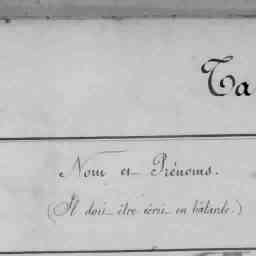 Ta
Nom et Prénoms.
(Il doit être écrit en bâtarde.)